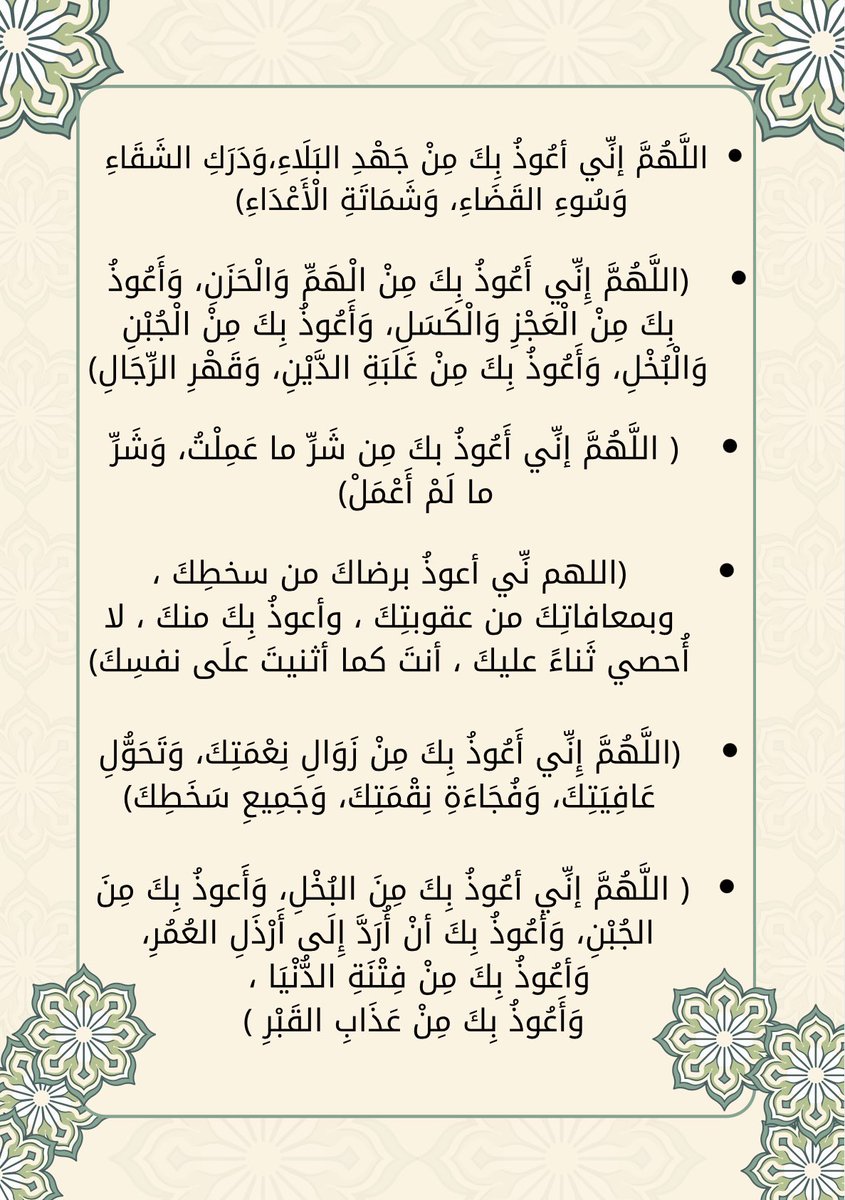 • اللَّهُمَّ إنِّي أعُوذُ بِكَ مِنْ جَهْدِ البَلَاءِ،وَدَرَكِ الشَقَاءِ
وَسُوءِ القَضَاءِ، وَشَمَاتَةِ الْأَعْدَاءِ)
• (اللَّهُمَّ إِنِّي أَعُوذُ بِكَ مِنْ الْهَمِّ وَالْحَزَنِ، وَأَعُوذُ
بِكَ مِنْ الْعَجْزِ وَالْكَسَلِ، وَأَعُوذُ بِكَ مِنْ الْجُبْنِ
وَالْبُخْلِ، وَأَعُوذُ بِكَ مِنْ غَلَبَةِ الدَّيْنِ، وَقَهْرِ الرِّجَالِ)
• ( اللَّهُمَّ إنِّي أَعُوذُ بكَ مِن شَرِّ ما عَمِلْتُ، وَشَرِّ
ما لَمْ أَعْمَلْ)
• (اللهم نِّي أعوذُ برضاكَ من سخطِكَ ،
وبمعافاتِكَ من عقوبتِكَ ، وأعوذُ بِكَ منكَ ، لا
أُحصي ثَناءً عليكَ ، أنتَ كما أثنيتَ علَى نفسِكَ)
• (اللَّهُمَّ إِنِّي أَعُوذُ بِكَ مِنْ زَوَالِ نِعْمَتِكَ، وَتَحَوُّلِ
عَافِيَتِكَ، وَفُجَاءَةِ نِقْمَتِكَ، وَجَمِيعِ سَخَطِكَ)
• ( اللَّهُمَّ إنِّي أعُوذُ بِكَ مِنَ البُخْلِ، وَأَعوذُ بِكَ مِنَ
الجُبْنِ، وَأعُوذُ بِكَ أنْ أُرَدَّ إِلَى أَرْذَلِ العُمُرِ،
وَأعُوذُ بِكَ مِنْ فِتْنَةِ الدُّنْيَا ،
وَأَعُوذُ بِكَ مِنْ عَذَابِ القَبْرِ )